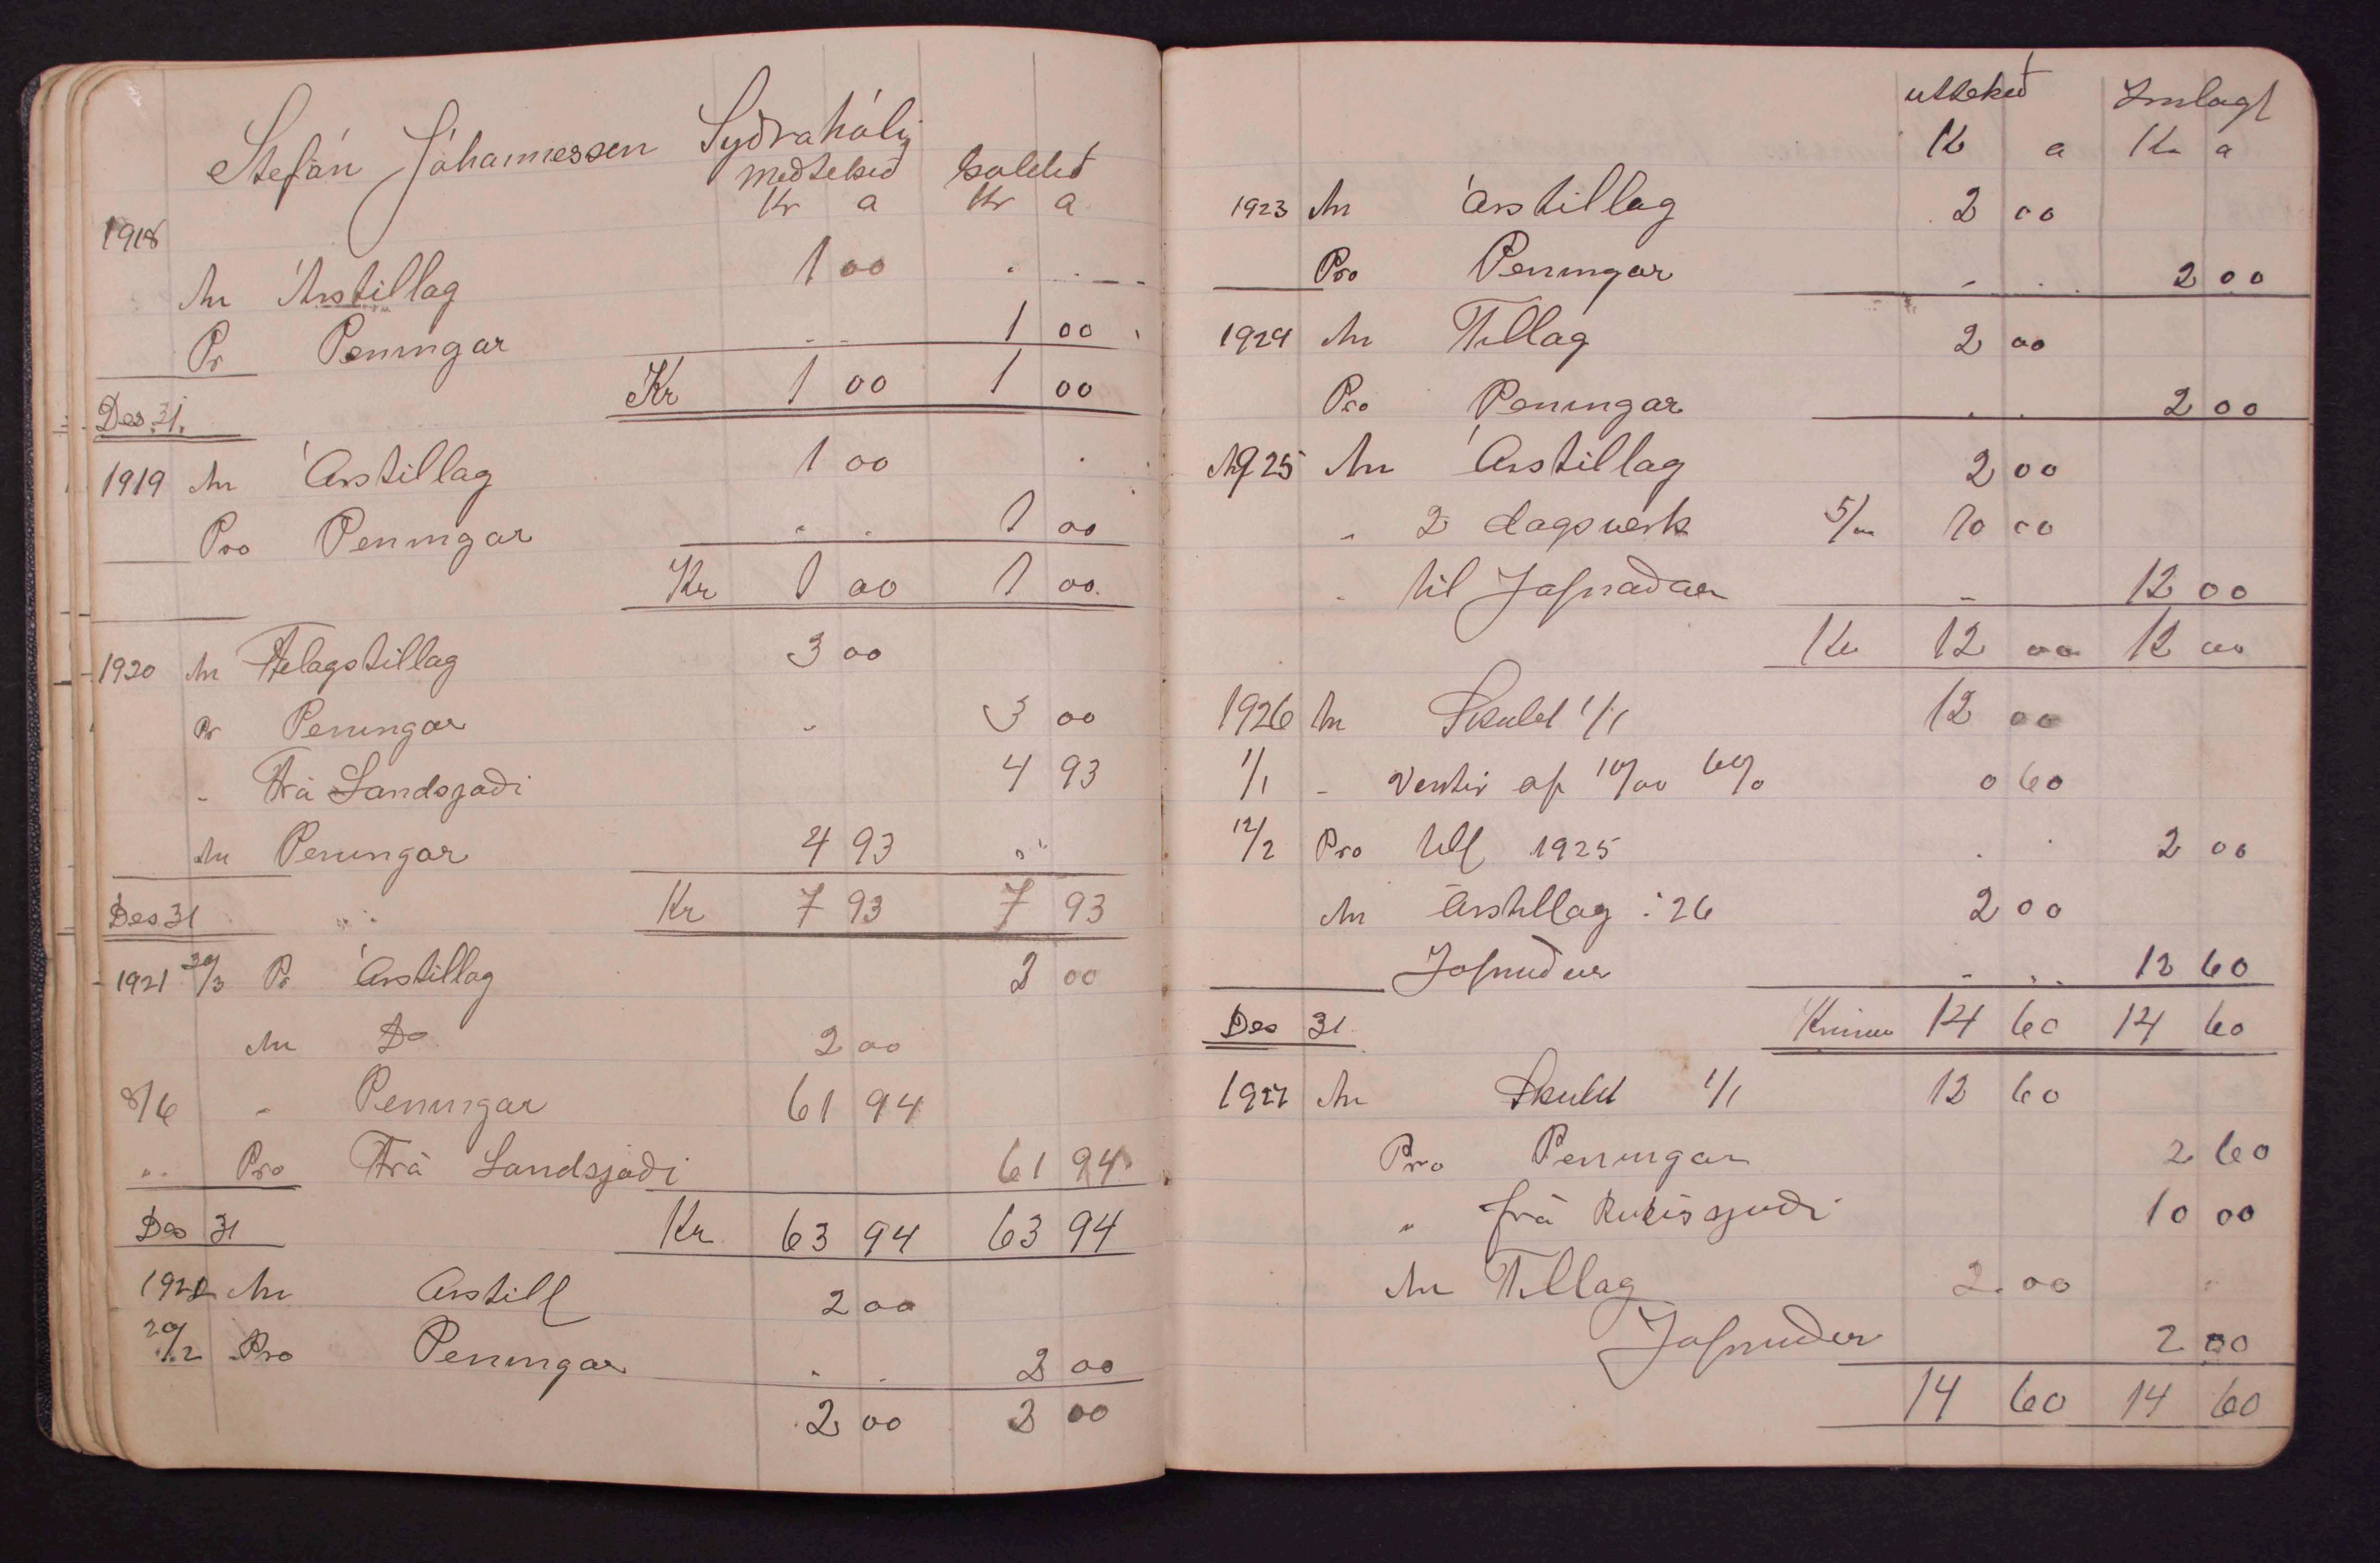 Stefán Jóhannesson Syðrahóli
meðtekið goldið
Kr a Kr a
1918
An Árstillag 1 00
Pr Peningar 1 00
Des 31. Kr 1 00 1 00
1919 An Árstillag 1 00
Pro Peningar 1 00
Kr 1 00 1 00
1920 An Felagstillag 3 00
Pr Peningar 3 00
- Frá Landsjoði 4 93
An Peningar 4 93
Des 31 Kr 7 93 7 93
1921 30/3 Pr Árstillag 2 00
An Do 2 00
8/6 - Peningar 61 94
" Pro Frá Landsjoði 61 94
Des 31 Kr 63 94 63 94
1922 An Arstill 2 00
20/2 Pro Peningar 2 00
2 00 2 00
uttekið Innlagt
K a Kr a
1923 An Árstillag 2 00
Pro Peningar 2 00
1924 An Tillag 2 00
Pro Peningar 2 00
1925 An Árstillag 2 00
- 2 dagsverk 5/00 10 00
- til Jafnaðar 12 00
Kr 12 00 12 00
1926 An Skuld 1/1 12 00
1/1 - Vextir af 10/00 6% 0 60
12/2 Pro till 1925 2 00
An Árstillag : 26 2 00
Jofnuður 12 60
Des 31 Krónur 14 60 14 60
1927 An Skuld 1/1 12 60
Pro Peningar 2 60
" frá Rikissjoði 10 00
An Tillag 2.00
Jofnuður 2 00
14 60 14 60